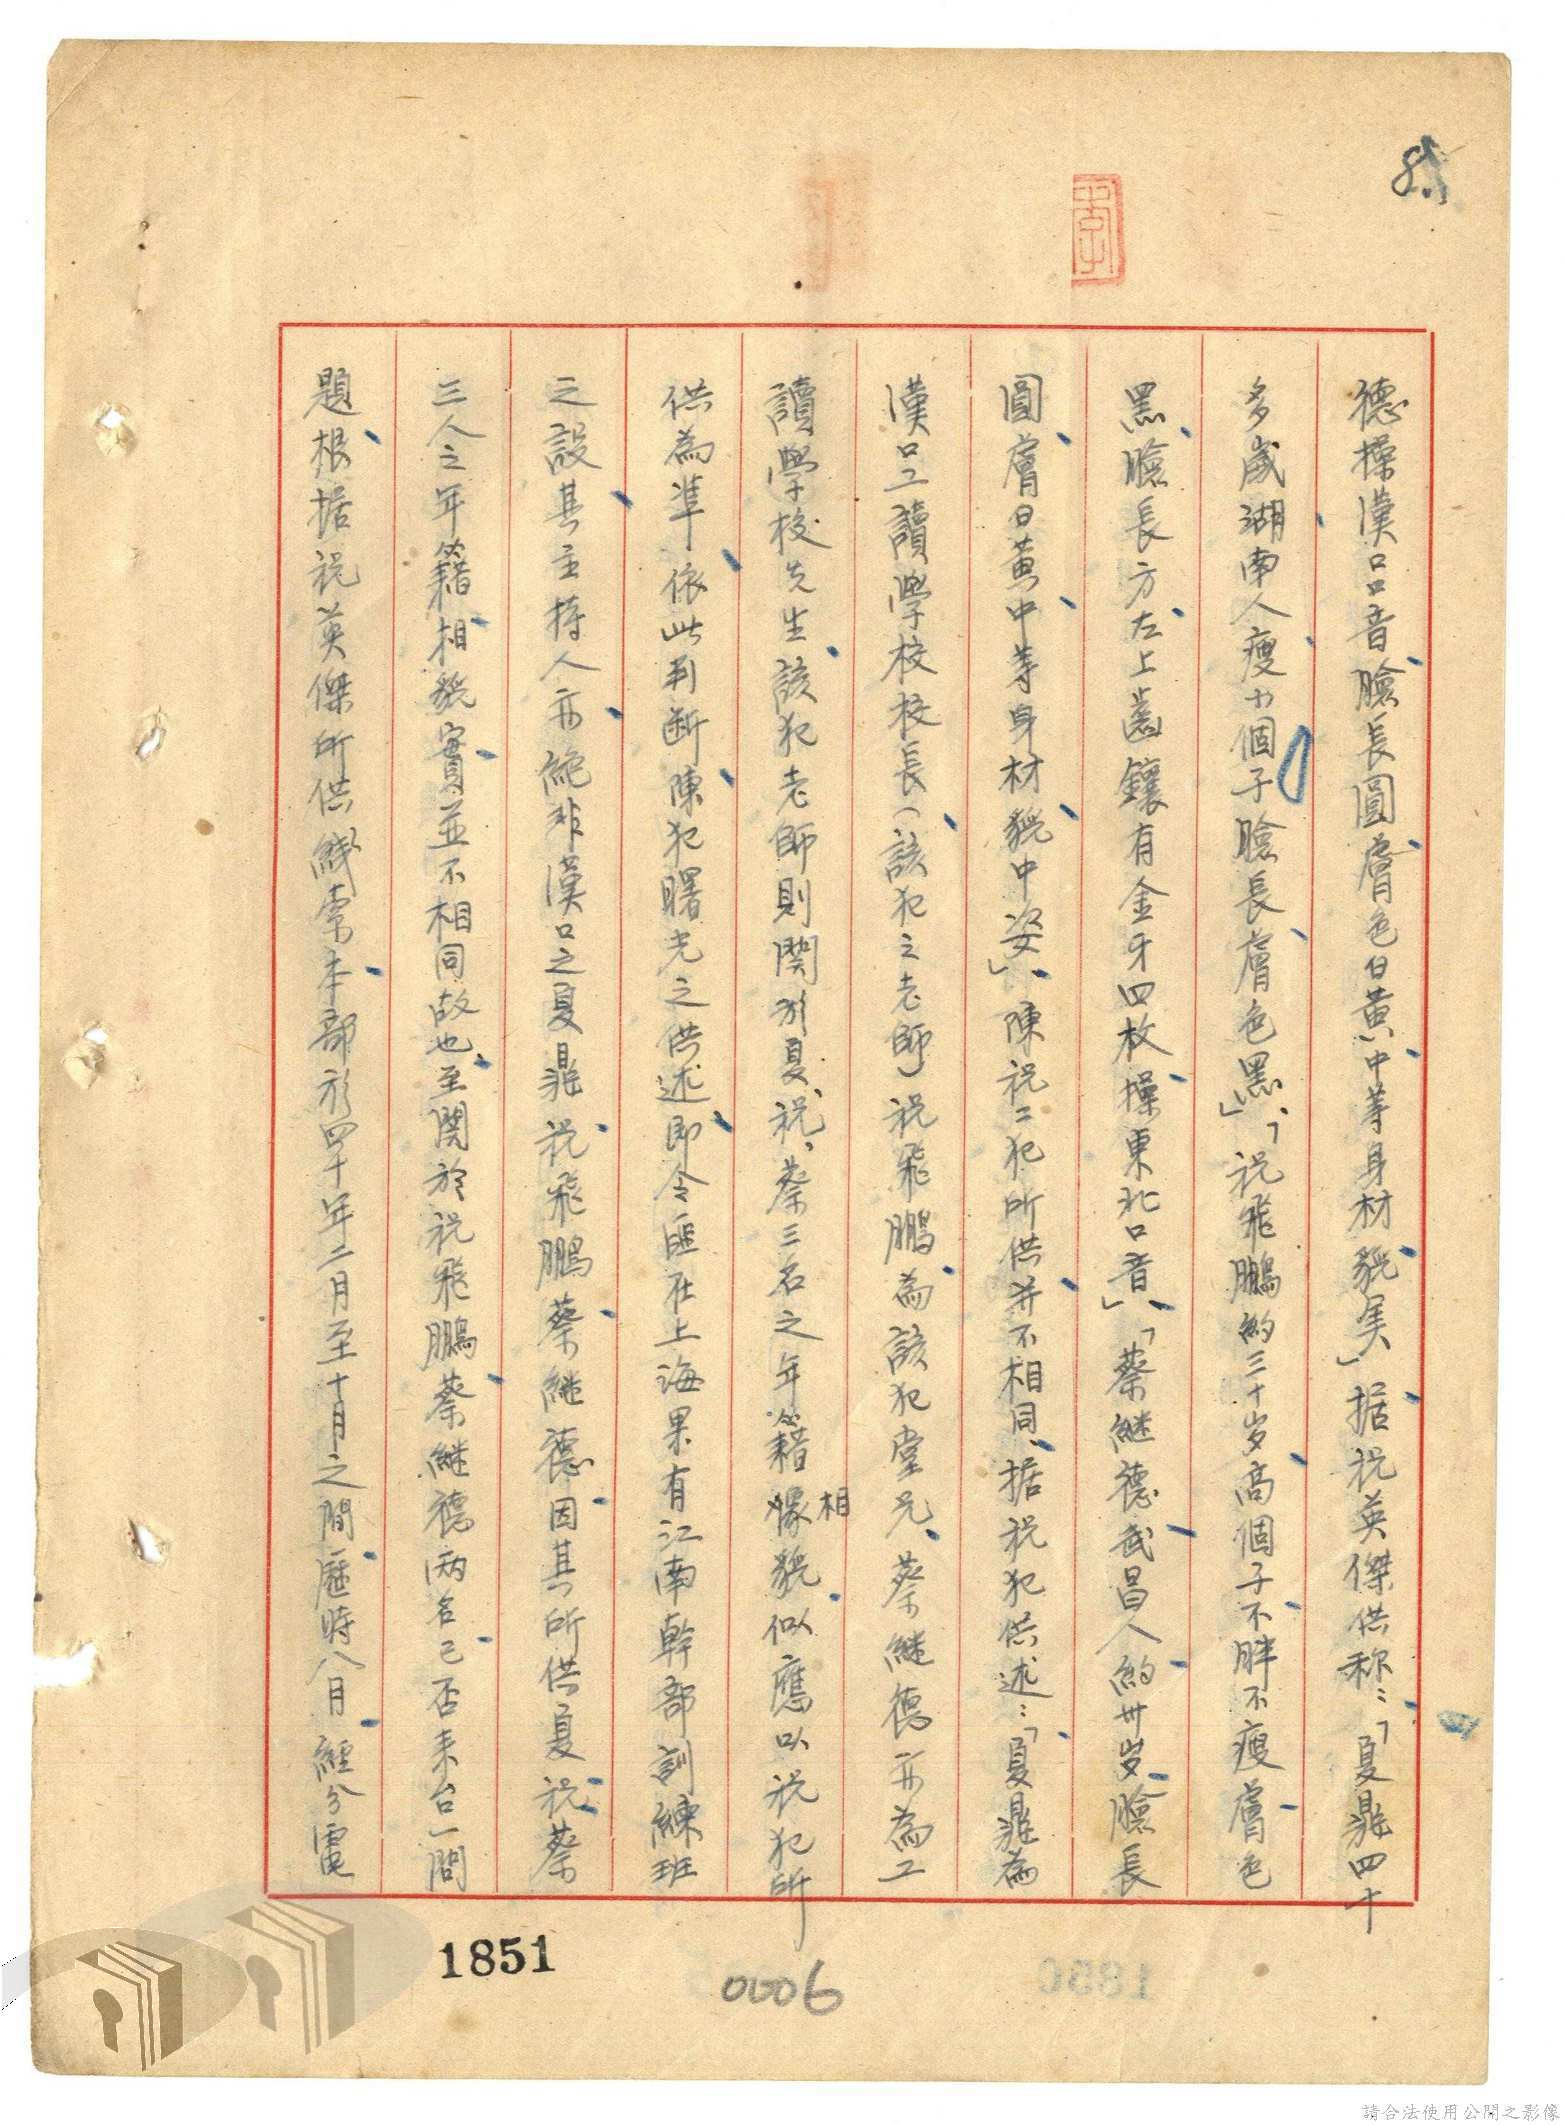 德操漢口口音臉長圓膚色白黃中等身材貌美」据祝英傑供称：「夏鼎四十
多歲湖南人瘦小個子臉長膚色黑」、「祝飛鵬約三十岁高個子不胖不瘦膚色
黑臉長方左上齒鑲有金牙四枚操東北口音」、「蔡継德武昌人約卅岁臉長
圓膚白黃中等身材貌中姿」、陳祝二犯所供并不相同、据祝犯供述：「夏鼎為
漢口工讀學校校長（該犯之老師）祝飛鵬為該犯堂兄、蔡継德亦為工
讀學校先生該犯老師則関於夏、祝、蔡三名之年籍相貌似應以祝犯所
供為準依此判断陳犯曙光之供述即令匪在上海果有江南幹部訓練班
之設其主持人亦絕非漢口之夏鼎祝飛鵬蔡継德因其所供夏祝蔡
三人之年籍相貌實並不相同故也至関於祝飛鵬蔡継德両名已否来台一問
題根据祝英傑所供綫索本部於四十年二月至十月之間歷時八月經分電
1851
0006
請合法使用公開之影像